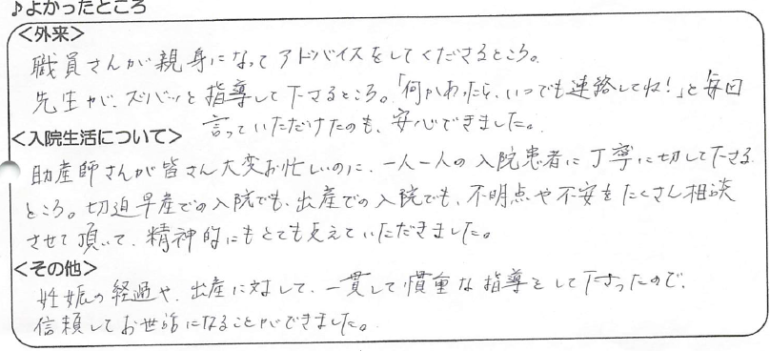 ♪よかったところ
<外来>
職員さんが親身になってアドバイスをしてくださるところ。
先生が、ズバッと指導して下さるところ。「何かあったら、いつでも連絡してね!」と毎回
言っていただけたのも、安心できました。
<入院生活について>
助産師さんが皆さん大変お忙しいのに、一人一人の入院患者に丁寧に切して下さる
ところ。切迫早産での入院でも、出産での入院でも、不明点や不安をたくさん相談
させて頂いて、精神的にもとても支えていただきました。
<その他>
妊娠の経過や、出産に対して、一貫して慎重な指導をして下さったので、
信頼してお世話になることができました。